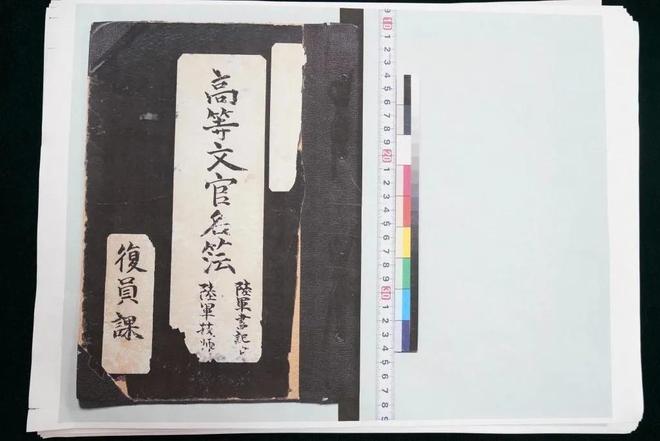 高等文官名簿
陸軍書記官
陸軍技師
復員課
9 10 1 2 3 4 5 6 7 8 9 20 1 2 3 4 5 6 7 8 9 30 1 2 3 4 5 6 7 8